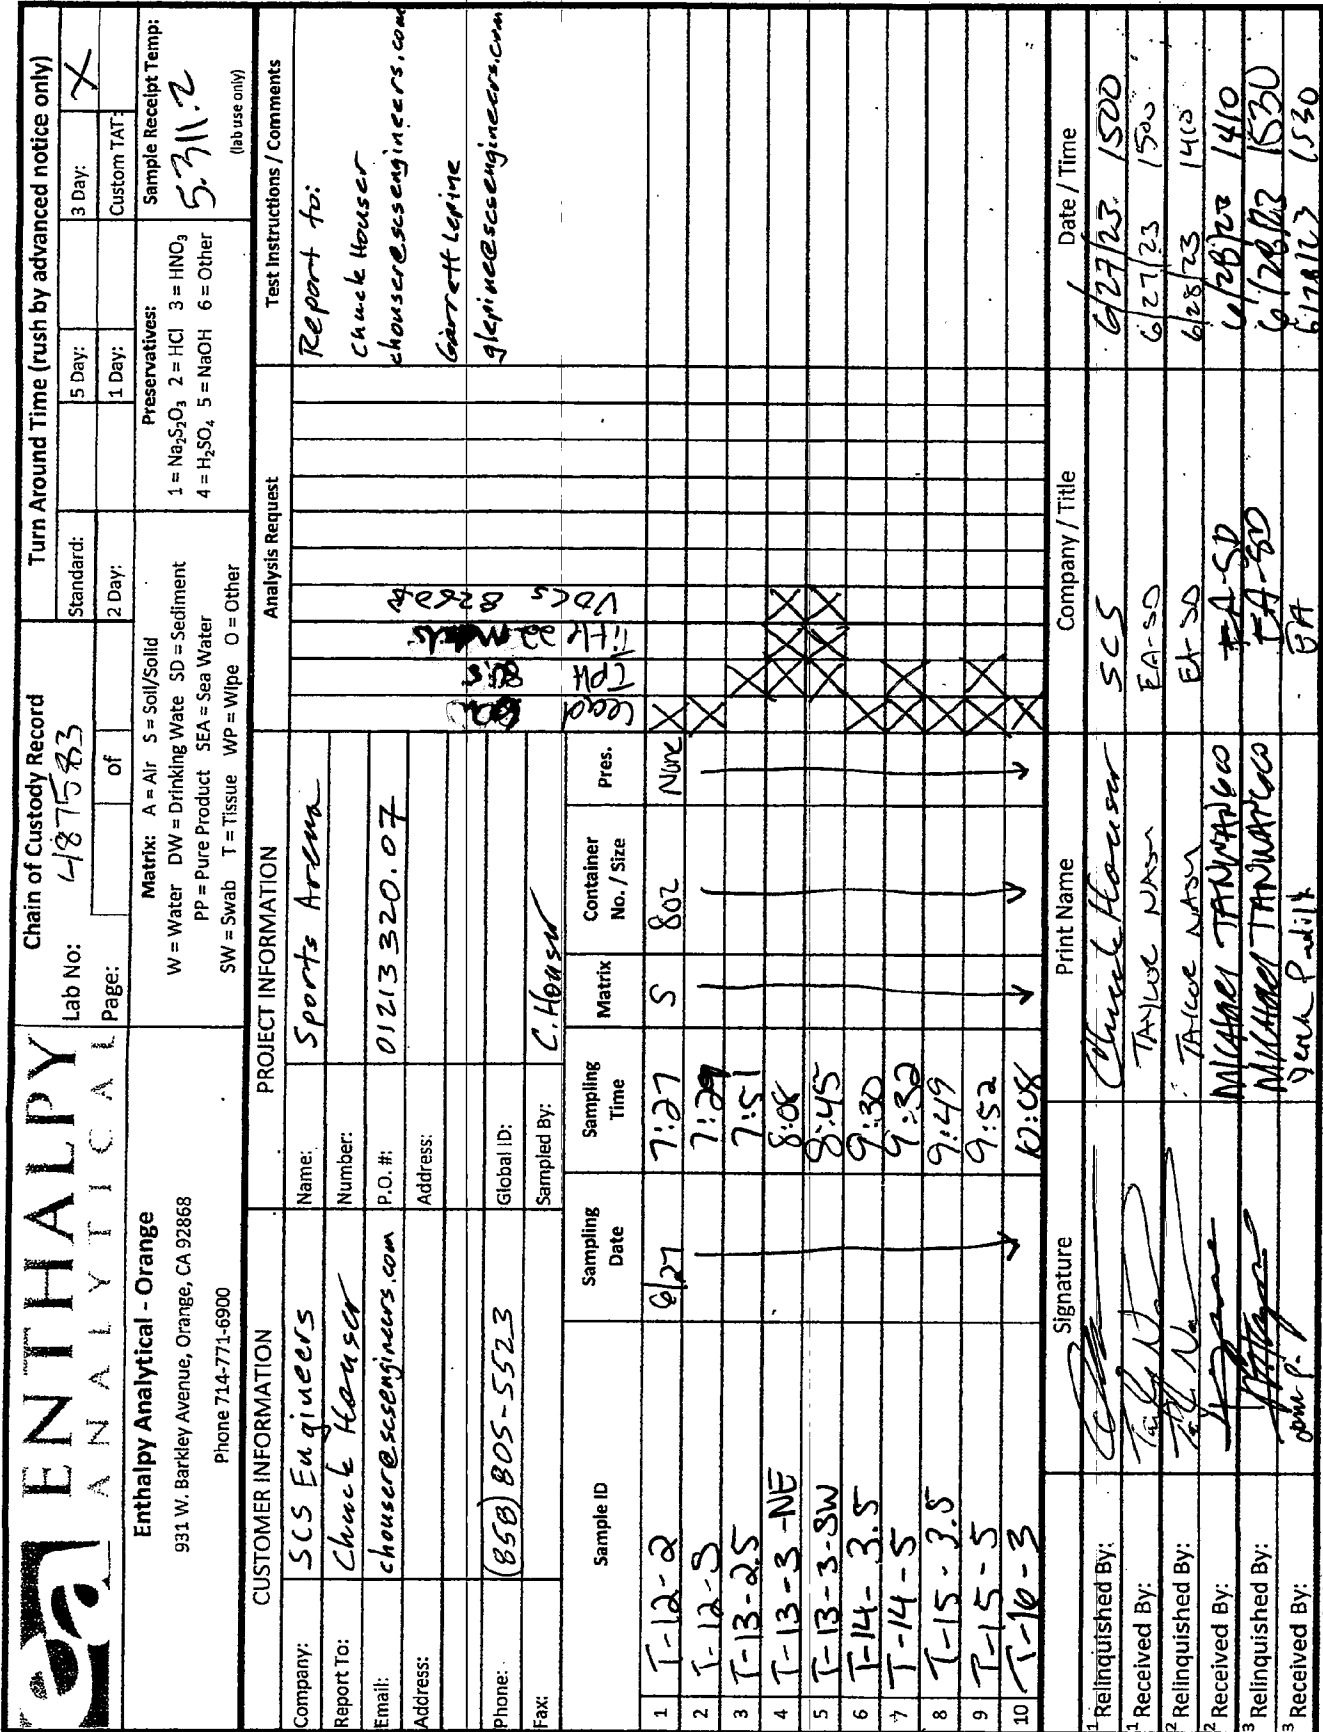 ea ENTHALPY
ANALYTICAL
Enthalpy Analytical - Orange
931 W. Barkley Avenue, Orange, CA 92868
Phone 714-771-6900
Chain of Custody Record
Lab No: 487583
Page: of
Turn Around Time (rush by advanced notice only)
Standard: 5 Day: 3 Day: X
2 Day: 1 Day: Custom TAT:
Matrix: A = Air S = Soil/Solid
W = Water DW = Drinking Wate SD = Sediment
PP = Pure Product SEA = Sea Water
SW = Swab T = Tissue WP = Wipe O = Other
Preservatives:
1 = Na₂S₂O₃ 2 = HCl 3 = HNO₃
4 = H₂SO₄ 5 = NaOH 6 = Other
Sample Receipt Temp:
5.3/1.2
(lab use only)
CUSTOMER INFORMATION
Company: SCS Engineers
Report To: Chuck Houser
Email: chouser@scsengineers.com
Address:
Phone: (858) 805-5523
Fax:
PROJECT INFORMATION
Name: Sports Arena
Number:
P.O. #: 01213320.07
Address:
Global ID:
Sampled By: C. Houser
Analysis Request
Lead
TPH 8015
Title 22 Metals
VOCs 8260
Test Instructions / Comments
Report to:
Chuck Houser
chouser@scsengineers.com
Garrett Lepine
glepine@scsengineers.com
Sample ID Sampling Date Sampling Time Matrix Container No. / Size Pres.
1 T-12-2 6/27 7:27 S 8oz None X
2 T-12-3 7:29 X
3 T-13-2.5 7:51 X
4 T-13-3-NE 8:08 X X X
5 T-13-3-SW 8:45 X X X
6 T-14-3.5 9:30 X
7 T-14-5 9:32 X X
8 T-15-3.5 9:49 X
9 T-15-5 9:52 X X
10 T-16-3 10:08 X
Signature Print Name Company / Title Date / Time
1 Relinquished By: Chuck Houser SCS 6/27/23 1500
1 Received By: TAYLOR NASH EA-SD 6/27/23 1500
2 Relinquished By: TAYLOR NASH EA-SD 6/28/23 1410
2 Received By: MICHAEL EA-SD 6/28/23 1410
3 Relinquished By: MICHAEL EA-SD 6/28/23 1530
3 Received By: EA 6/28/23 1530